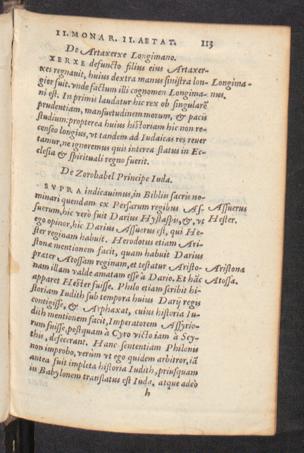 II. MONAR. II. AETAT. 113
De Artaxerxe Longimano.
XERXE defuncto filius eius Artaxer-
xes regnauit, huius dextra manus sinistra lon- Longima-
gior fuit. vnde factum illi cognomen Longima- nus.
ni est. In primis laudatur hic rex ob singularē
prudentiam, mansuetudinem morum, & pacis
studium: propterea huius historiam hic non re-
censeo longius, vt tandem ad Iudaicas res reuer
tamur, ne ignoremus quis interea status in Ec-
clesia & spirituali regno fuerit.
De Zorobabel Principe Iuda.
SVPRA indicauimus, in Biblijs sacris no-
minari quendam ex Persarum regibus As- Assuerus
suerum, hic verò fuit Darius Hystaspis, & vt Hester.
ego opinor, hic Darius Assuerus est, qui He-
ster reginam habuit. Herodotus etiam Ari-
stonæ mentionem facit, quam habuit Darius
præter Atossam reginam, et testatur Aristo- Aristona
nam illam valde amatam esse à Dario. Et hæc Atossa.
apparet Hester fuisse. Philo etiam scribit hi-
storiam Iudith sub tempora huius Darij regis
contigisse, & Arphaxat, cuius historia Iu-
dith mentionem facit, Imperatorem Assyrio-
rum fuisse, postquam à Cyro victo iam à Scy-
this, defecerant. Hanc sententiam Philonis
non improbo, verùm vt ego quidem arbitror, iā
antea fuit impleta historia Iudith, priusquam
in Babylonem translatus est Iuda, atque adeò
h